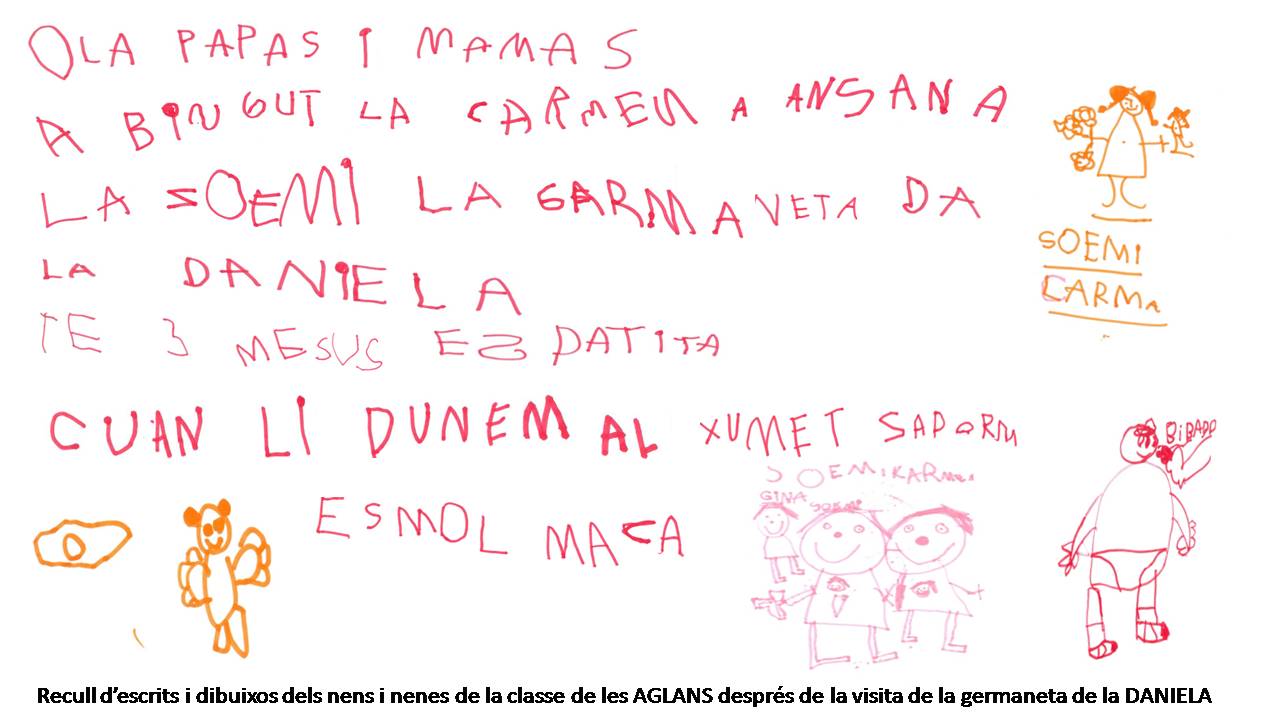 OLA PAPAS I MAMAS
A BINGUT LA CARMEN A ANSANA
LA SOEMI LA GARMAVETA DA
LA DANIELA
TE 3 MESUS ES PATITA
CUAN LI DUNEM AL XUMET SAPORM
ESMOL MACA
SOEMI
CARMA
BIBARO
SOEMI KARMEN
GINA SOEMI
Recull d'escrits i dibuixos dels nens i nenes de la classe de les AGLANS després de la visita de la germaneta de la DANIELA